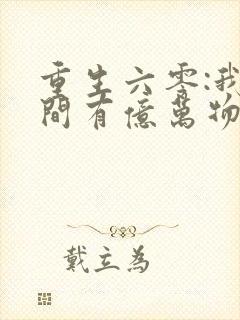 重生六零:我
間有億萬物
戴立為